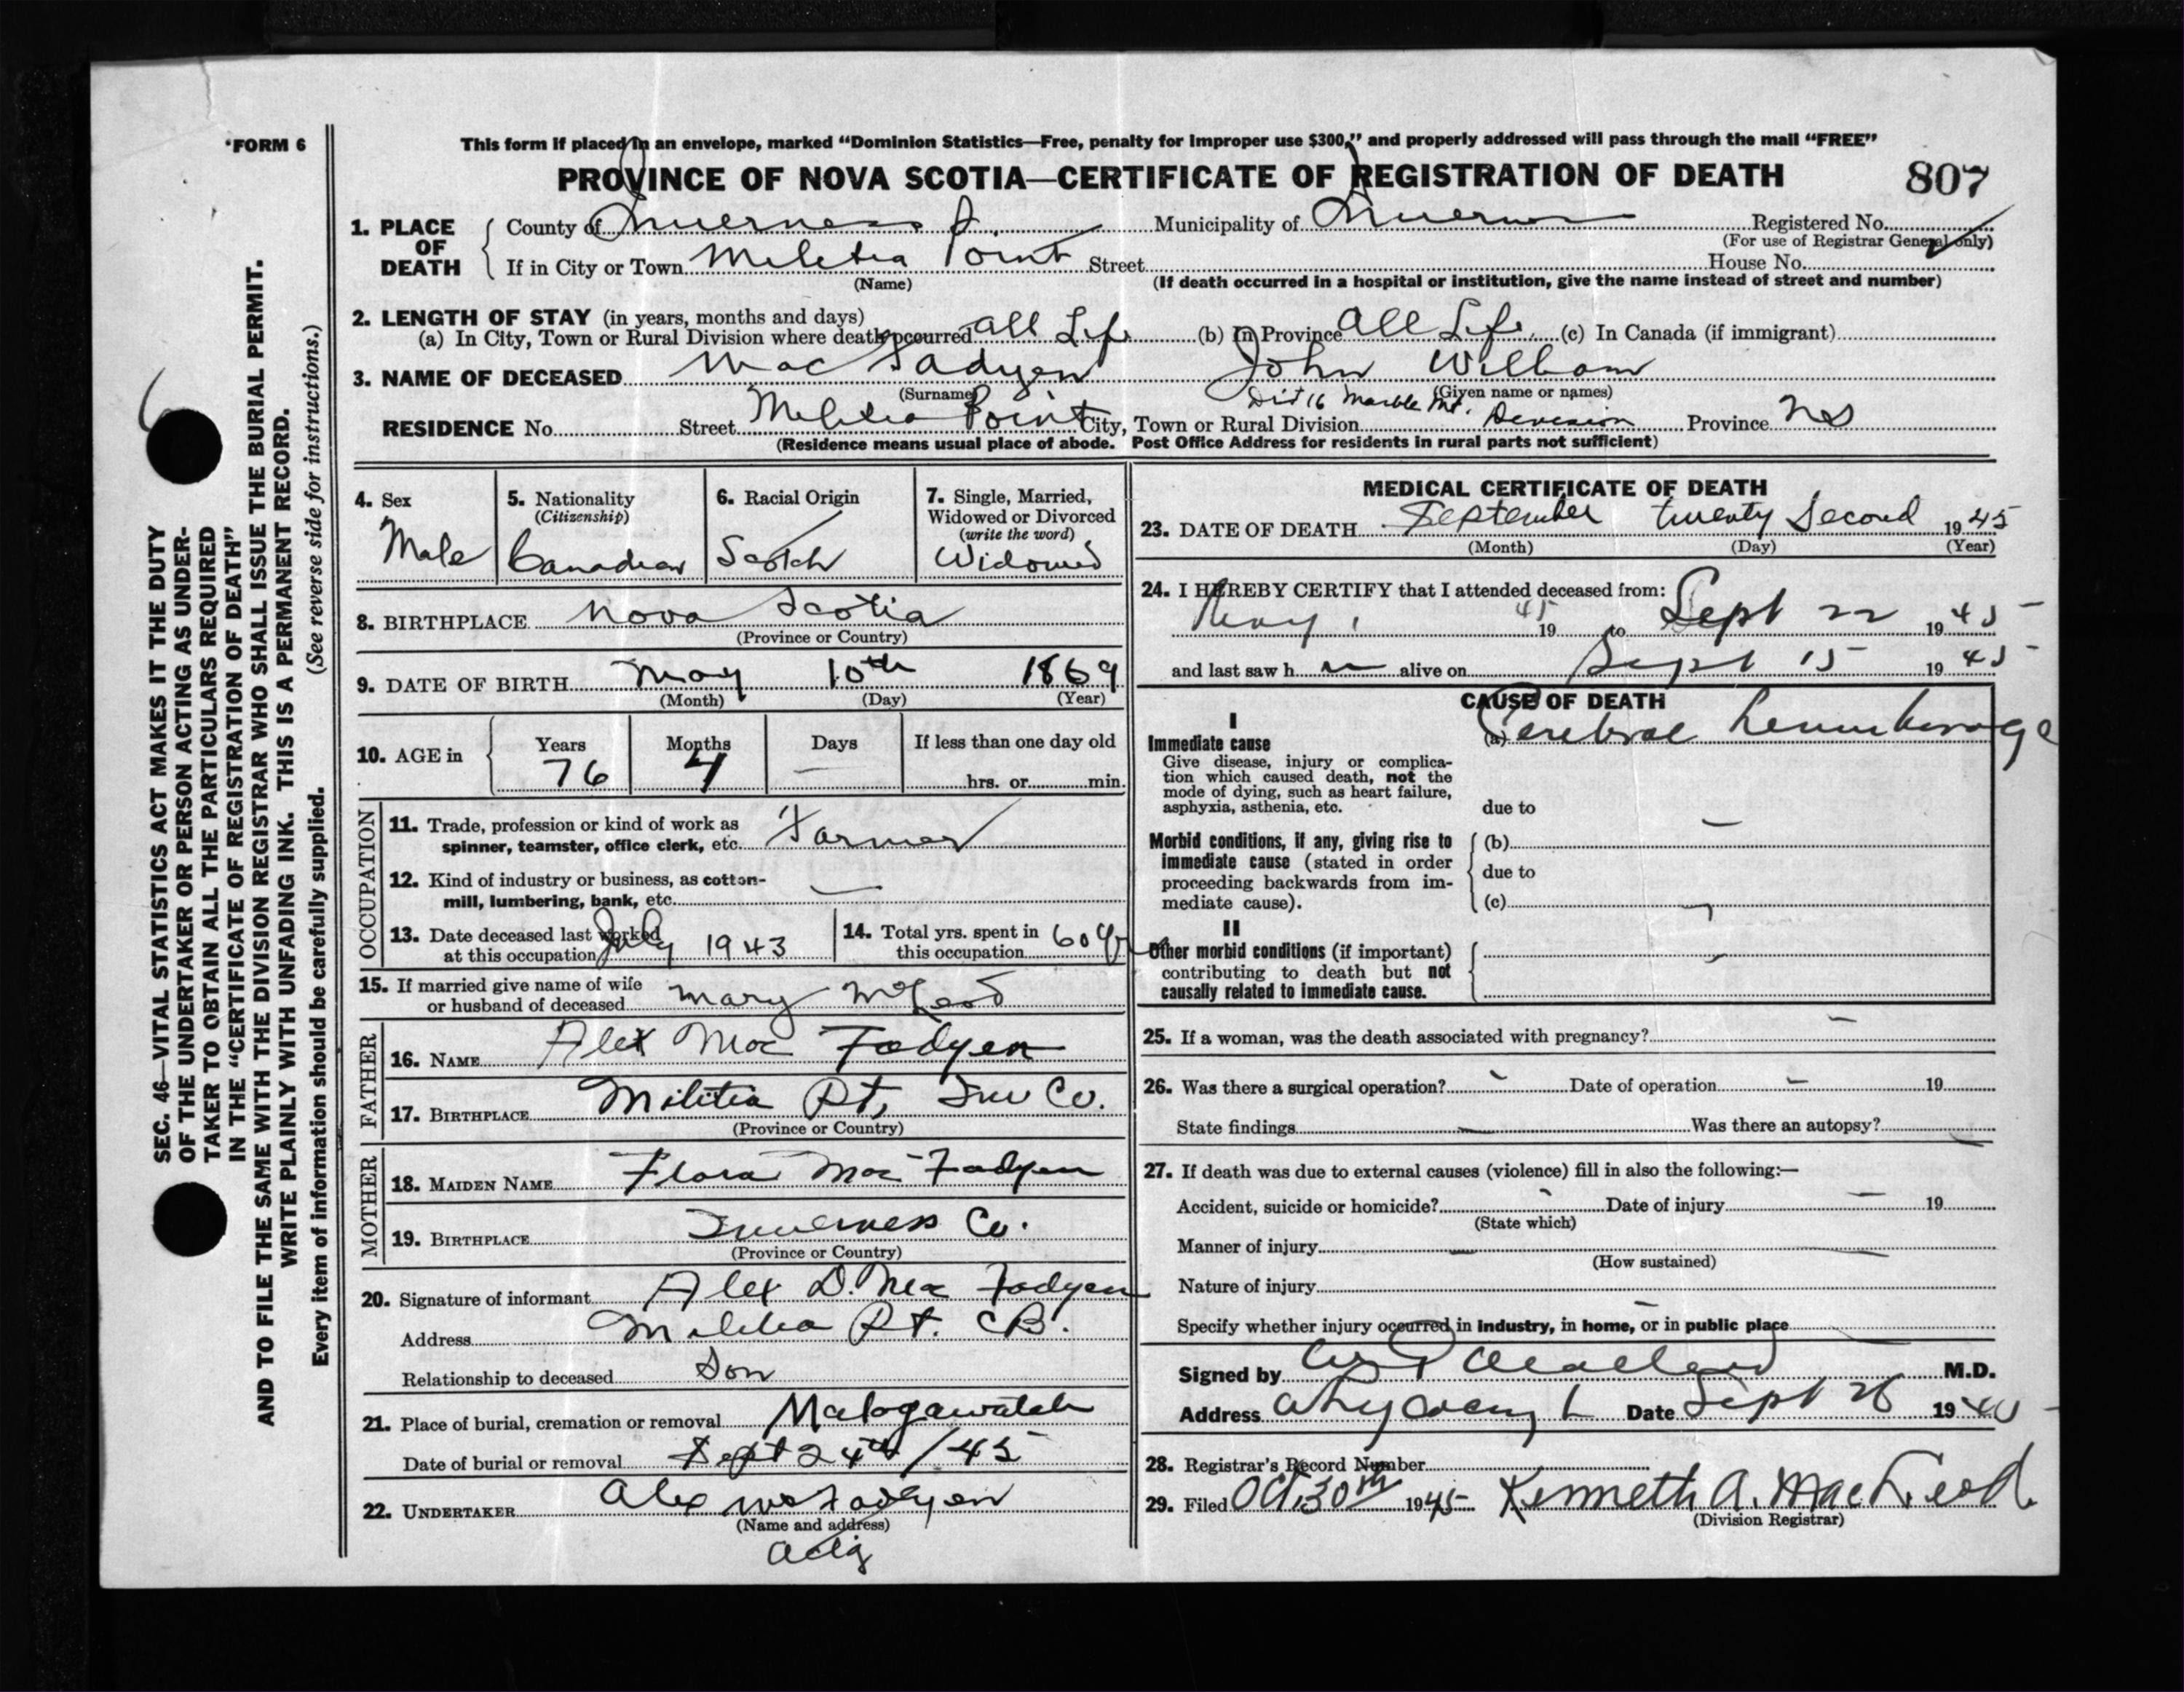 FORM 6
This form if placed in an envelope, marked "Dominion Statistics—Free, penalty for improper use $300," and properly addressed will pass through the mail "FREE"
PROVINCE OF NOVA SCOTIA—CERTIFICATE OF REGISTRATION OF DEATH 807
1. PLACE OF DEATH County of Inverness Municipality of Inverness Registered No.
(For use of Registrar General only)
If in City or Town Militia Point Street House No.
(Name) (If death occurred in a hospital or institution, give the name instead of street and number)
2. LENGTH OF STAY (in years, months and days)
(a) In City, Town or Rural Division where death occurred all Life (b) In Province All Life (c) In Canada (if immigrant)
3. NAME OF DECEASED MacFadyen John William
(Surname) (Given name or names)
Dist 16 Marble Mt.
RESIDENCE No. Street Militia Point City, Town or Rural Division Division Province NS
(Residence means usual place of abode. Post Office Address for residents in rural parts not sufficient)
4. Sex Male
5. Nationality (Citizenship) Canadian
6. Racial Origin Scotch
7. Single, Married, Widowed or Divorced (write the word) Widowed
8. BIRTHPLACE Nova Scotia
(Province or Country)
9. DATE OF BIRTH May 10th 1869
(Month) (Day) (Year)
10. AGE in Years Months Days If less than one day old
76 4 — hrs. or min.
OCCUPATION
11. Trade, profession or kind of work as
spinner, teamster, office clerk, etc. Farmer
12. Kind of industry or business, as cotton-
mill, lumbering, bank, etc. —
13. Date deceased last worked
at this occupation July 1943
14. Total yrs. spent in
this occupation 60 yr
15. If married give name of wife
or husband of deceased Mary McLeod
FATHER
16. NAME Alex Mac Fadyen
17. BIRTHPLACE Militia Pt, Inv Co.
(Province or Country)
MOTHER
18. MAIDEN NAME Flora Mac Fadyen
19. BIRTHPLACE Inverness Co.
(Province or Country)
20. Signature of informant Alex D. Mac Fadyen
Address Militia Pt. CB.
Relationship to deceased Son
21. Place of burial, cremation or removal Malagawatch
Date of burial or removal Sept 24th/45
22. UNDERTAKER Alex McFadyen
(Name and address)
MEDICAL CERTIFICATE OF DEATH
23. DATE OF DEATH September twenty Second 1945
(Month) (Day) (Year)
24. I HEREBY CERTIFY that I attended deceased from:
1945 to Sept 22 1945
and last saw h alive on Sept 15 1945
CAUSE OF DEATH
I
Immediate cause (a) Cerebral hemorrhage
Give disease, injury or complica-
tion which caused death, not the
mode of dying, such as heart failure,
asphyxia, asthenia, etc. due to
Morbid conditions, if any, giving rise to (b) —
immediate cause (stated in order
proceeding backwards from im- due to
mediate cause). (c) —
II
Other morbid conditions (if important)
contributing to death but not
causally related to immediate cause.
25. If a woman, was the death associated with pregnancy? —
26. Was there a surgical operation? — Date of operation — 19
State findings — Was there an autopsy? —
27. If death was due to external causes (violence) fill in also the following:—
Accident, suicide or homicide? — Date of injury — 19
(State which)
Manner of injury —
(How sustained)
Nature of injury
Specify whether injury occurred in industry, in home, or in public place
Signed by M.D.
Address Date Sept 26 19
28. Registrar's Record Number
29. Filed Oct. 30th 1945 Kenneth A. MacLeod
(Division Registrar)
SEC. 46—VITAL STATISTICS ACT MAKES IT THE DUTY
OF THE UNDERTAKER OR PERSON ACTING AS UNDER-
TAKER TO OBTAIN ALL THE PARTICULARS REQUIRED
IN THE "CERTIFICATE OF REGISTRATION OF DEATH"
AND TO FILE THE SAME WITH THE DIVISION REGISTRAR WHO SHALL ISSUE THE BURIAL PERMIT.
WRITE PLAINLY WITH UNFADING INK. THIS IS A PERMANENT RECORD.
Every item of information should be carefully supplied. (See reverse side for instructions.)